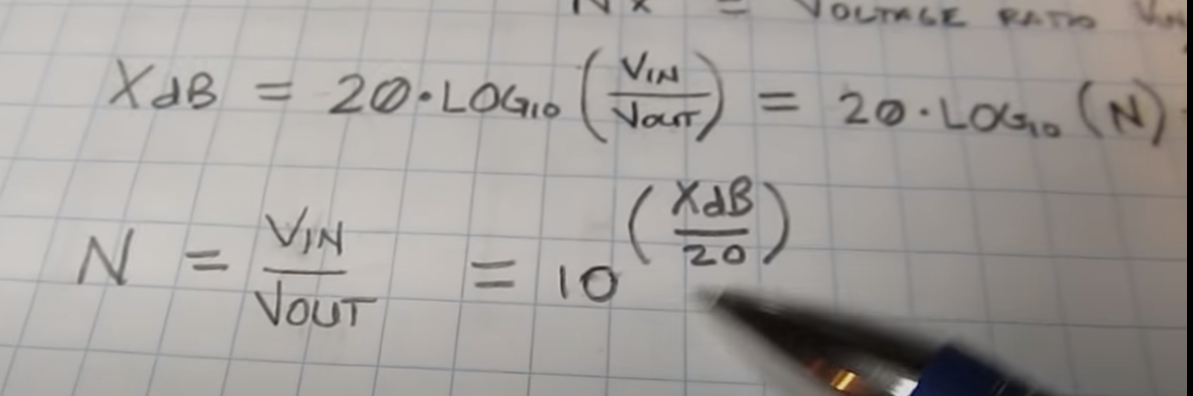 = VOLTAGE RATIO
XdB = 20·LOG₁₀ (VIN/VOUT) = 20·LOG₁₀ (N)
N = VIN/VOUT = 10^(XdB/20)